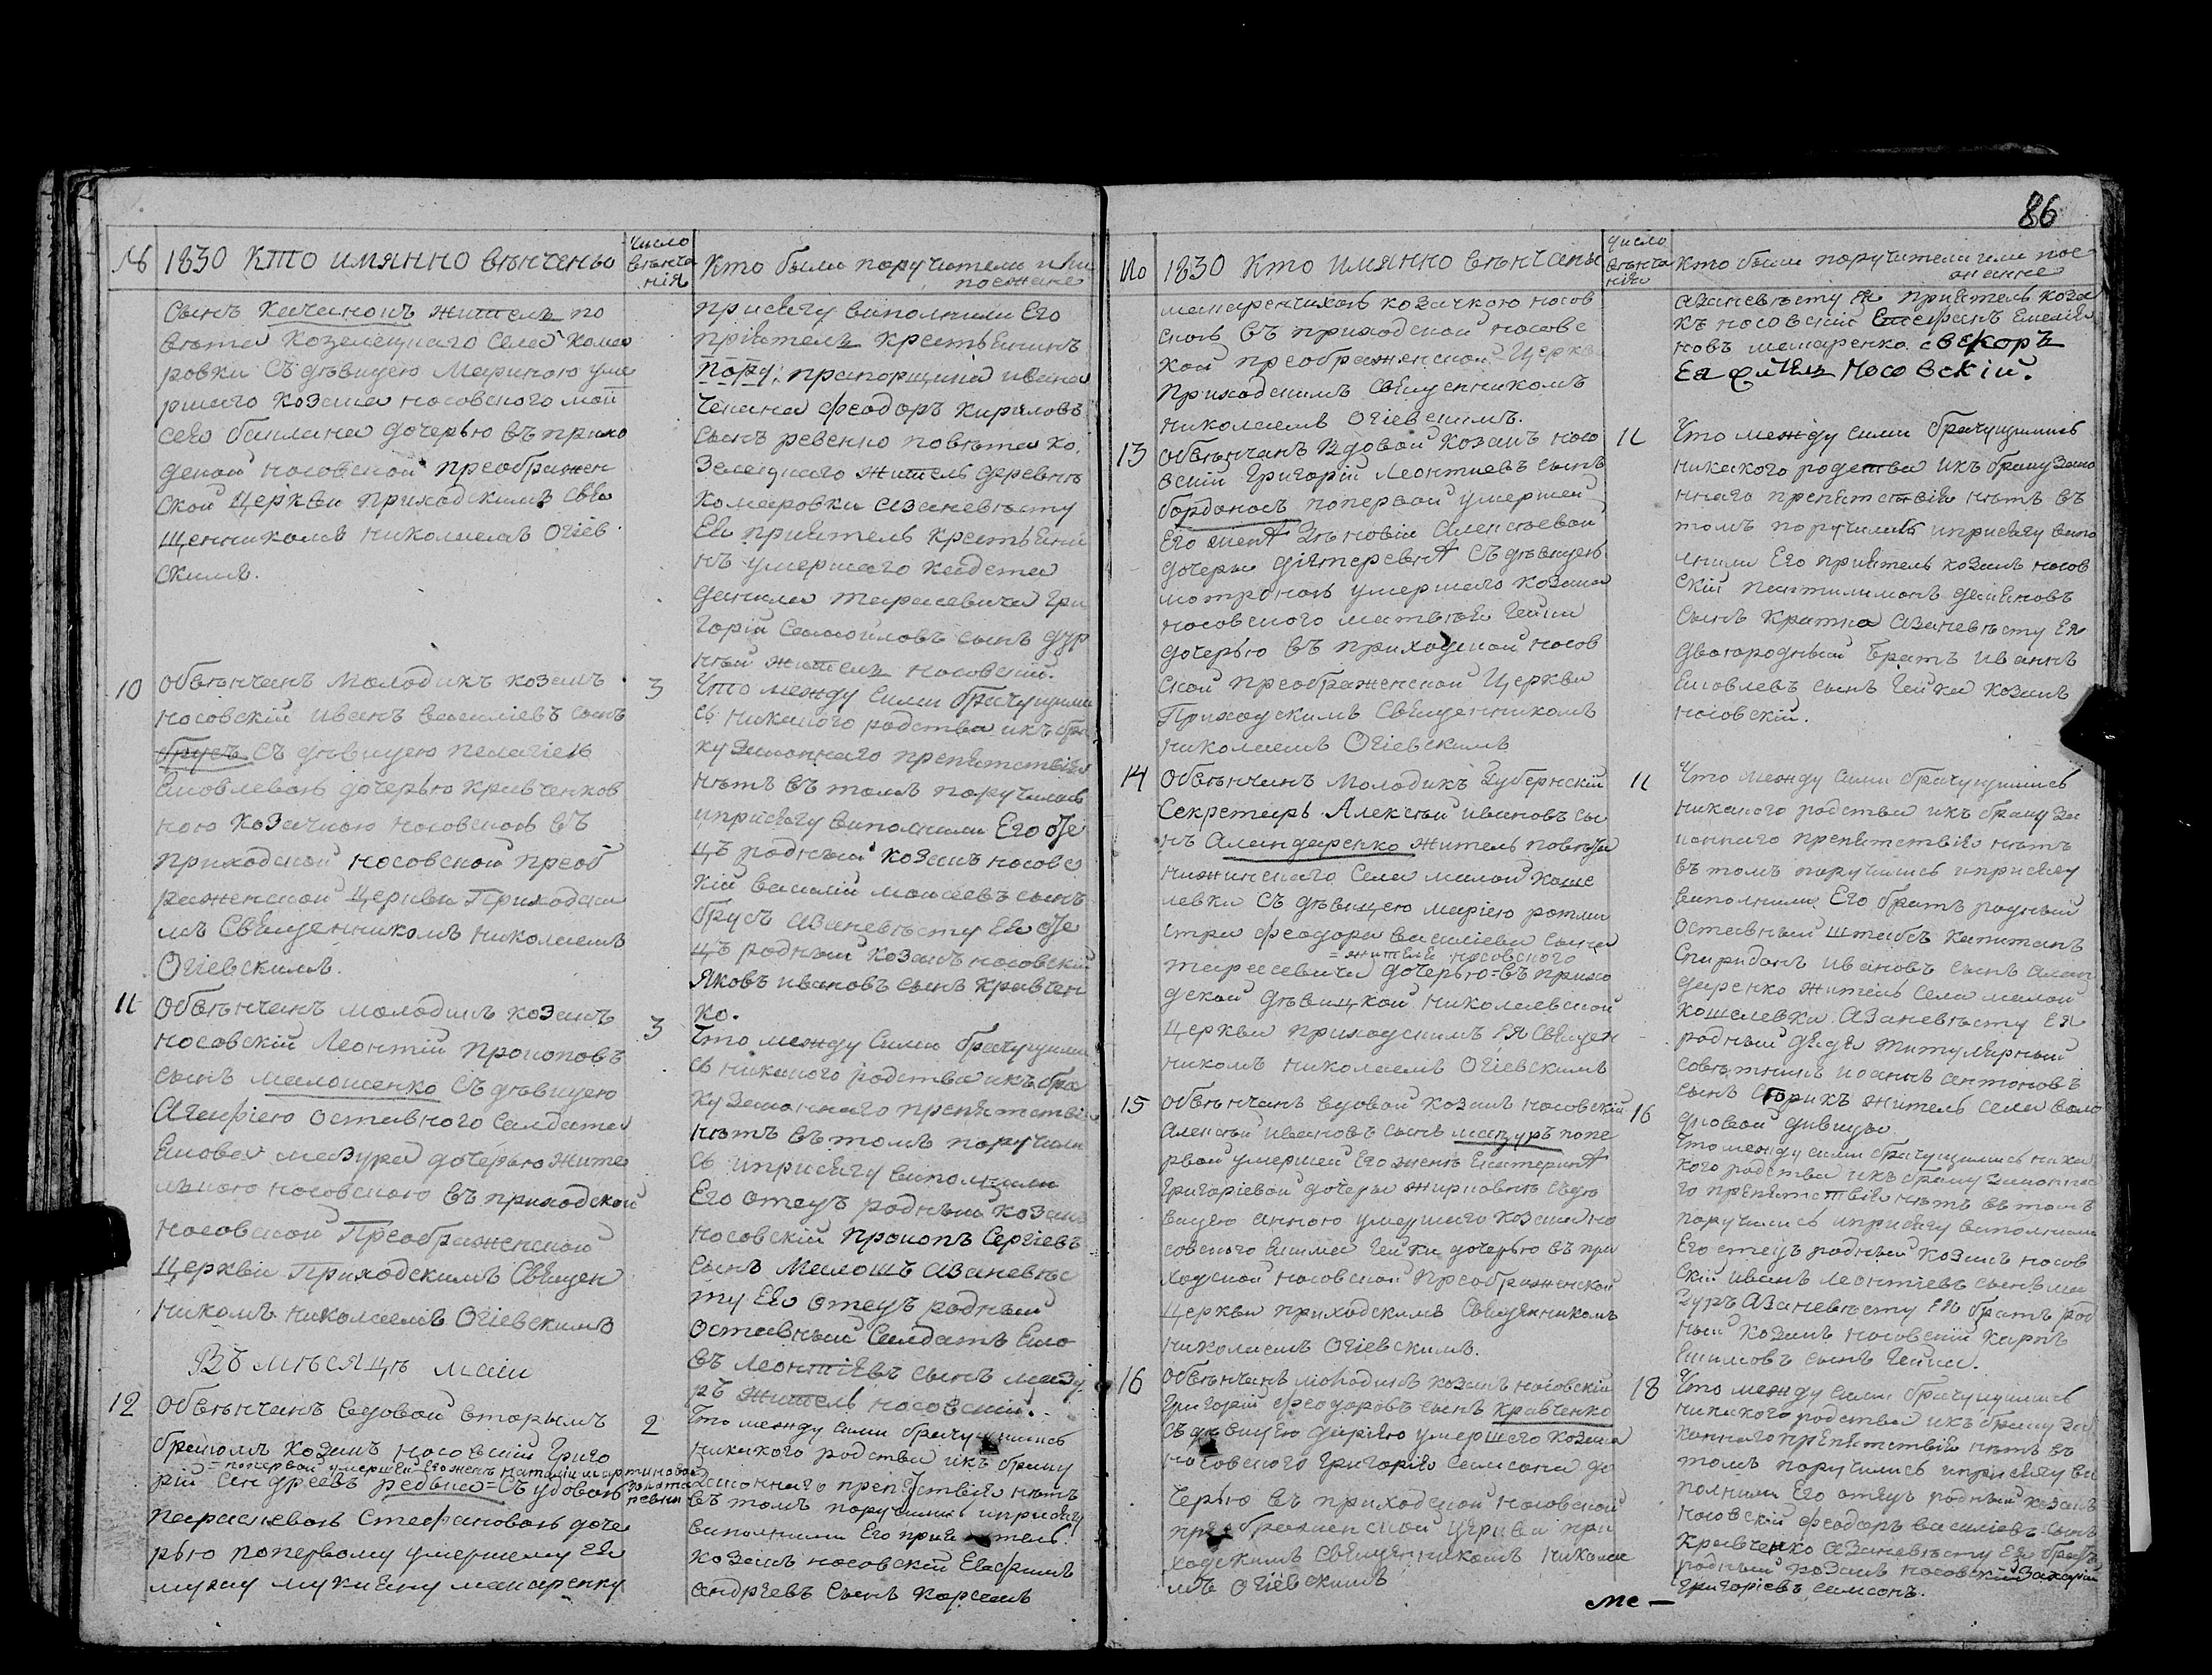 № 1830 Кто имянно венчены
Число венча нія
Кто были поручители или поезжане
Сынъ Качанокъ житель по
вета Козелецкаго села Кома
ровки съ девицею Мариною уме
ршаго козака носовского мои
сея баклана дочерью въ прихо
дской носовской преображен
ской церкви приходскимъ свя
щенникомъ николаемъ Огіев
скимъ.
присягу виполнили Его
пріятель крестьянинъ
пору: прапорщика ивана
феодоръ кириловъ
сынъ ревенко повета ко
зелецкаго житель деревне
комаровки азаневесту
Ея пріятель крестьяни
нъ умершаго кадета
данила тарасевича гри
горій самоиловъ сынъ дур
ный житель носовскій.
10
обвенчанъ молодикъ козакъ
носовскій иванъ василіевъ сынъ
брусъ съ девицею пелагіею
Яковлевою дочерью кравченков
ною козачкою носовскою въ
приходской носовской преоб
раженской церкви Приходски
мъ Священникомъ николаемъ
Огіевскимъ.
3
Что между сими брачущими
сь никакого родства и къ бра
ку законнаго препятствія
нетъ въ томъ поручились
и присягу виполнили Его оте
цъ родный козакъ носовс
кій василій моисеевъ сынъ
брусъ азаневесту Ея оте
цъ родный козакъ носовскій
Яковъ ивановъ сынъ кравчен
ко.
11
Обвенчанъ молодикъ козакъ
носовскій Леонтій прокоповъ
сынъ малошенко съ девицею
Агафіею отставного салдата
Якова мазура дочерью жите
лькою носовскою въ приходской
носовской Преображенской
Церкви Приходскимъ Священ
никомъ николаемъ Огіевскимъ
3
Что между сими брачущими
сь никакого родства и къ бра
ку законнаго препятствія
нетъ въ томъ поручили
сь и присягу виполнили
Его отецъ родный козакъ
носовскій прокопъ Сергіевъ
сынъ Малошъ азаневес
ту Его отецъ родный
оставный салдатъ Яко
въ Леонтіевъ сынъ мазу
ръ житель носовскій.
Въ месяце маіи
12
обвенчанъ вдовой вторымъ
бракомъ козакъ носовскій Григо
= попервой умершей его жене наталіи мартиновой
рій андреевъ редька = съ удовою
параскевою Стефановою доче
рью попервому умершему Ея
мужу макаренку
2
Что между сими брачущимись
никакого родства и къ браку
законнаго препятствія нетъ
въ томъ поручились и присягу
виполнили Его пріятель
козакъ носовскій Евфимъ
андреевъ сынъ Карсакъ
86
№ 1830 Кто имянно венчаны
число венча нія
Кто были поручители или пое зжанне
макаренчихою козачкою носов
скою въ приходской носовс
кой преображенской Церкве
Приходскимъ священникомъ
николаемъ Огіевскимъ.
азаневесту Ея пріятель коза
къ носовскій Стефанъ Емелія
новъ макаренко свекоръ
Ея Носовскій.
13
обвенчанъ вдовой козакъ носо
вскій Григорій Леонтиевъ сынъ
борданосъ попервой умершей
Его жене Зеновіи Алексеевой
дочери съ девицею
мотроною умершаго козака
носовского матвея Гейки
дочерью въ приходской носов
ской преображенской Церкви
Приходскимъ Священникомъ
николаемъ Огіевскимъ
11
Что между сими брачущимись
никакого родства и къ браку зако
ннаго препятствія нетъ въ
томъ поручились и присягу випо
лнили Его пріятель козакъ носов
скій пантилимонъ дамяновъ
сынъ Кратко азаневесту Ея
двоюродный братъ иванъ
Яковлевъ сынъ Гейка козакъ
носовскій.
14
Обвенчанъ молодикъ Губернскій
Секретарь Алексей ивановъ сы
нъ Аландаренко житель повета
нежинскаго села малой коше
левки съ девицею маріею ротми
стра феодора василіева сына
= жителя носовского
тарасевича дочерью = въ прихо
дской девицкой николаевской
церкви приходскимъ ея Священ
никомъ николаемъ Огіевскимъ
11
Что между сими брачущимись
никакого родства и къ браку за
коннаго препятствія нетъ
въ томъ поручились и присягу
виполнили Его братъ родный
оставный штабсъ капитанъ
Спиридонъ ивановъ сынъ алан
даренко житель села малой
кошелевки азаневесту Ея
родный дядя титулярный
советникъ иоаннъ антоновъ
сынъ житель села воло
дковой дивицы
15
Обвенчанъ вдовой козакъ носовскій
Алексей ивановъ сынъ мазуръ попе
рвой умершей Его жене Екатерине
Григоріевой дочери жирковне съ де
вицею анною умершаго козака но
совского Якима Гейки дочерью въ при
ходской носовской Преображенской
Церкви приходскимъ Священникомъ
николаемъ Огіевскимъ.
16
Что между сими брачущимись ника
кого родства и къ браку законна
го препятствія нетъ въ томъ
поручились и присягу виполнили
Его отецъ родный козакъ носов
скій иванъ Леонтіевъ сынъ ма
зуръ азаневесту Ея братъ род
ный козакъ носовскій карпъ
Якимовъ сынъ Гейка.
16
обвенчанъ молодикъ козакъ носовскій
Григорій феодоровъ сынъ Кравченко
съ девицею даріею умершего козака
носовского Григорія Самсона до
черью въ приходской носовской
преображенской церкви при
ходскимъ Священникомъ никола
мъ Огіевскимъ
18
Что между сими брачущимись
никакого родства и къ браку за
коннаго препятствія нетъ въ
томъ поручились и присягу ви
полнили Его отецъ родный козакъ
носовскій феодоръ василіевъ сынъ
Кравченко азаневесту Ея братъ
родный козакъ носовскій Захарій
Григоріевъ Самсонъ.
ме —